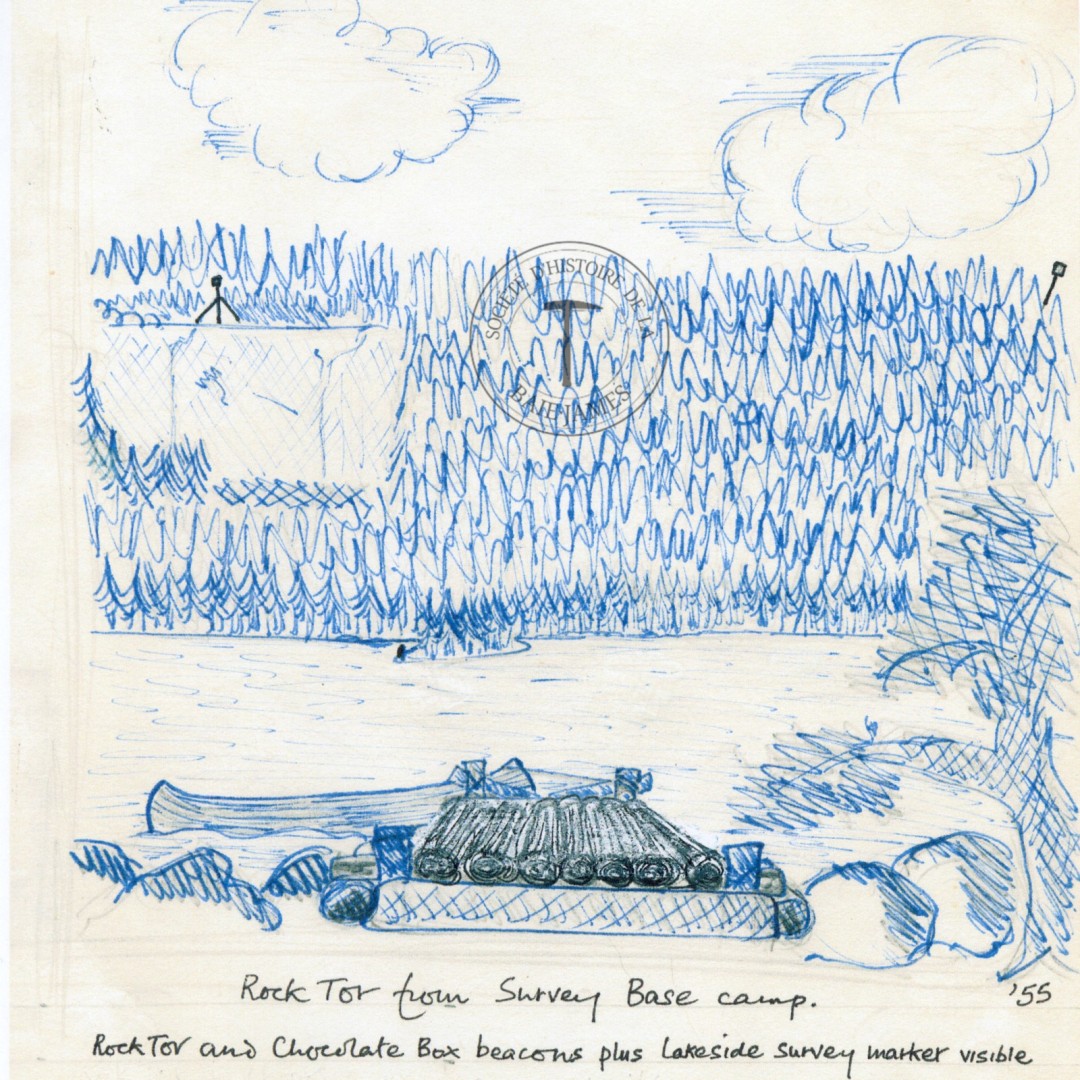 SOCIÉTÉ D'HISTOIRE DE LA
BAIE JAMES
Rock Tor from Survey Base camp.
'55
Rock Tor and Chocolate Box beacons plus Lakeside survey marker visible